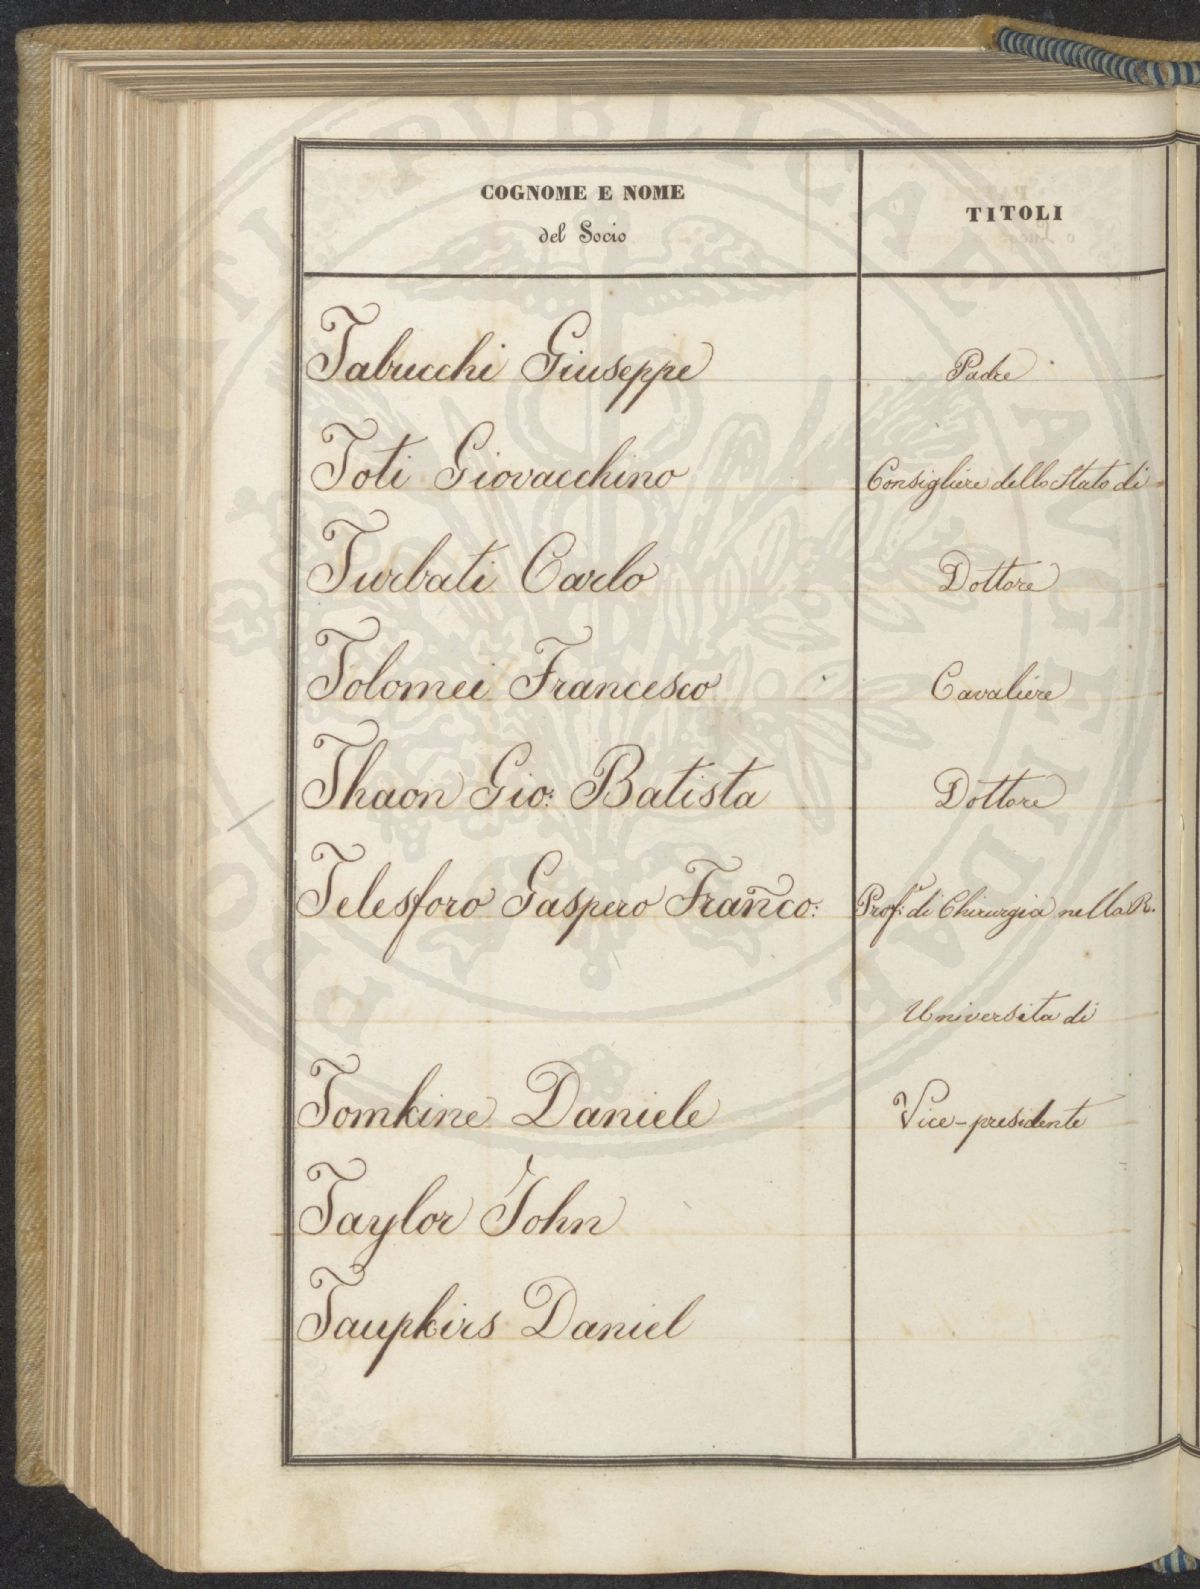 COGNOME E NOME
del Socio
TITOLI
Tabucchi Giuseppe Padre
Toti Giovacchino Consigliere dello Stato di
Turbati Carlo Dottore
Tolomei Francesco Cavaliere
Thaon Gio: Batista Dottore
Telesforo Gaspero Franco: Prof.r di Chirurgia nella R.
Universita di
Tomkine Daniele Vice-presidente
Taylor John
Taupkirs Daniel